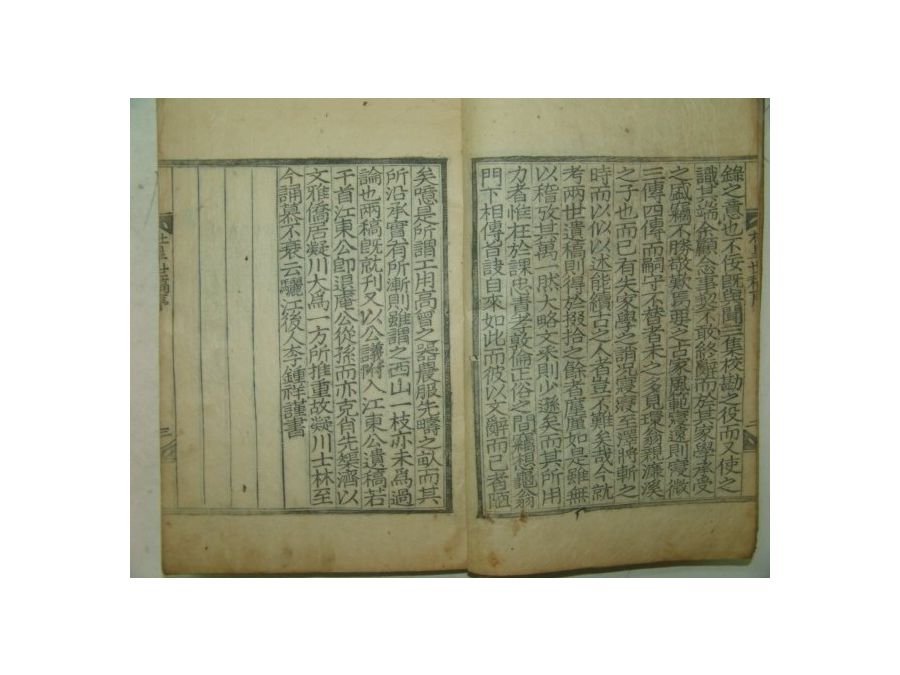 錄之意也不佞旣與聞三隻校勘之役而又使之
識其端余顧念事契不敢終辭而於其家學承受
之盛竊不勝敬歎焉噫古家風範寢遠則寢微
三傳四傳而嗣守不替者未之多見
之子也而已有失家學之誚況寢寢至澤將斬之
時而以似以述能續古之人者豈不難矣哉今就
考兩世遺稿則得於掇拾之餘者厪厪如是雖無
以稽攷其萬一然大略文采則少遜矣而其所用
力者惟在於課忠責孝敦倫正俗之間竊想翁
門下相傳旨訣自來如此而彼以文辭而已者陋
矣噫是所謂工用高曾之器農服先疇之畝而其
所沿承實有所漸則雖謂之西山一枝亦未爲過
論也兩稿旣就刊又以公議附入江東公遺稿若
干首江東公卽退庵公從孫而亦克肖先榘濟以
文雅僑居凝川大爲一方所推重故凝川士林至
今誦慕不衰云驪江後人李鍾祥謹書
世稿序
三